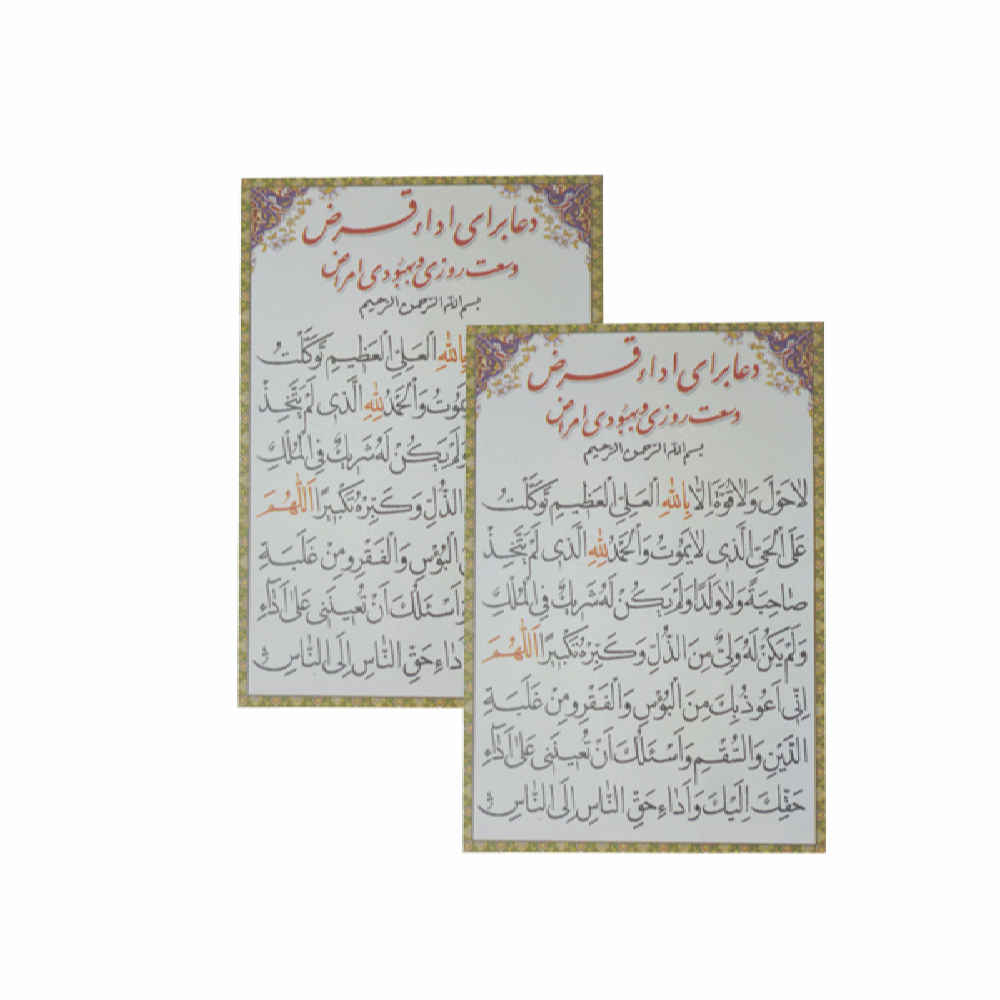 دعا برای اداء قرض
وسعت روزی و بهبودی امراض
بسم الله الرحمن الرحیم
بِاللهِ الْعَلِیِّ الْعَظیمِ تَوَکَّلْتُ
یَمُوتُ وَالْحَمْدُ لِلهِ الَّذی لَمْ یَتَّخِذْ
وَلَمْ یَکُنْ لَهُ شَریکٌ فِی الْمُلْکِ
الذُّلِّ وَکَبِّرْهُ تَکْبیرًا اَللّٰهُمَّ
الْبُؤْسِ وَالْفَقْرِ وَمِنْ غَلَبَةِ
وَاَسْئَلُکَ اَنْ تُعینَنی عَلیٰ اَدٰاءِ
اَدٰاءِ حَقِّ النّٰاسِ اِلَی النّٰاسِ
دعا برای اداء قرض
وسعت روزی و بهبودی امراض
بسم الله الرحمن الرحیم
لاٰحَوْلَ وَلاٰ قُوَّةَ اِلّاٰ بِاللهِ الْعَلِیِّ الْعَظیمِ تَوَکَّلْتُ
عَلَی الْحَیِّ الَّذی لاٰیَمُوتُ وَالْحَمْدُ لِلهِ الَّذی لَمْ یَتَّخِذْ
صٰاحِبَةً وَلاٰ وَلَدًا وَلَمْ یَکُنْ لَهُ شَریکٌ فِی الْمُلْکِ
وَلَمْ یَکُنْ لَهُ وَلِیٌّ مِنَ الذُّلِّ وَکَبِّرْهُ تَکْبیرًا اَللّٰهُمَّ
اِنّی اَعُوذُ بِکَ مِنَ الْبُؤْسِ وَالْفَقْرِ وَمِنْ غَلَبَةِ
الدَّیْنِ وَالسُّقْمِ وَاَسْئَلُکَ اَنْ تُعینَنی عَلیٰ اَدٰاءِ
حَقِّکَ اِلَیْکَ وَاَدٰاءِ حَقِّ النّٰاسِ اِلَی النّٰاسِ